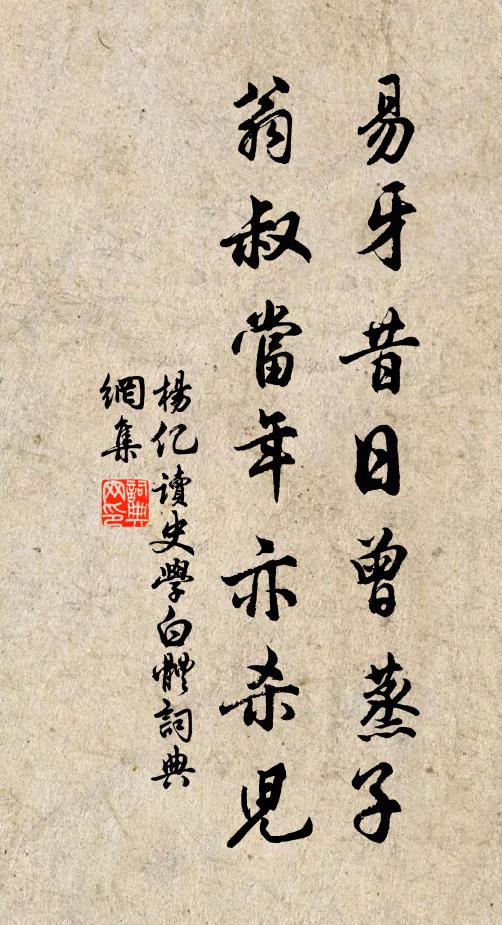 易牙昔日曾蒸子
翁叔當年亦杀児
楊亿讀史學白體詞典
網集
詞典网印